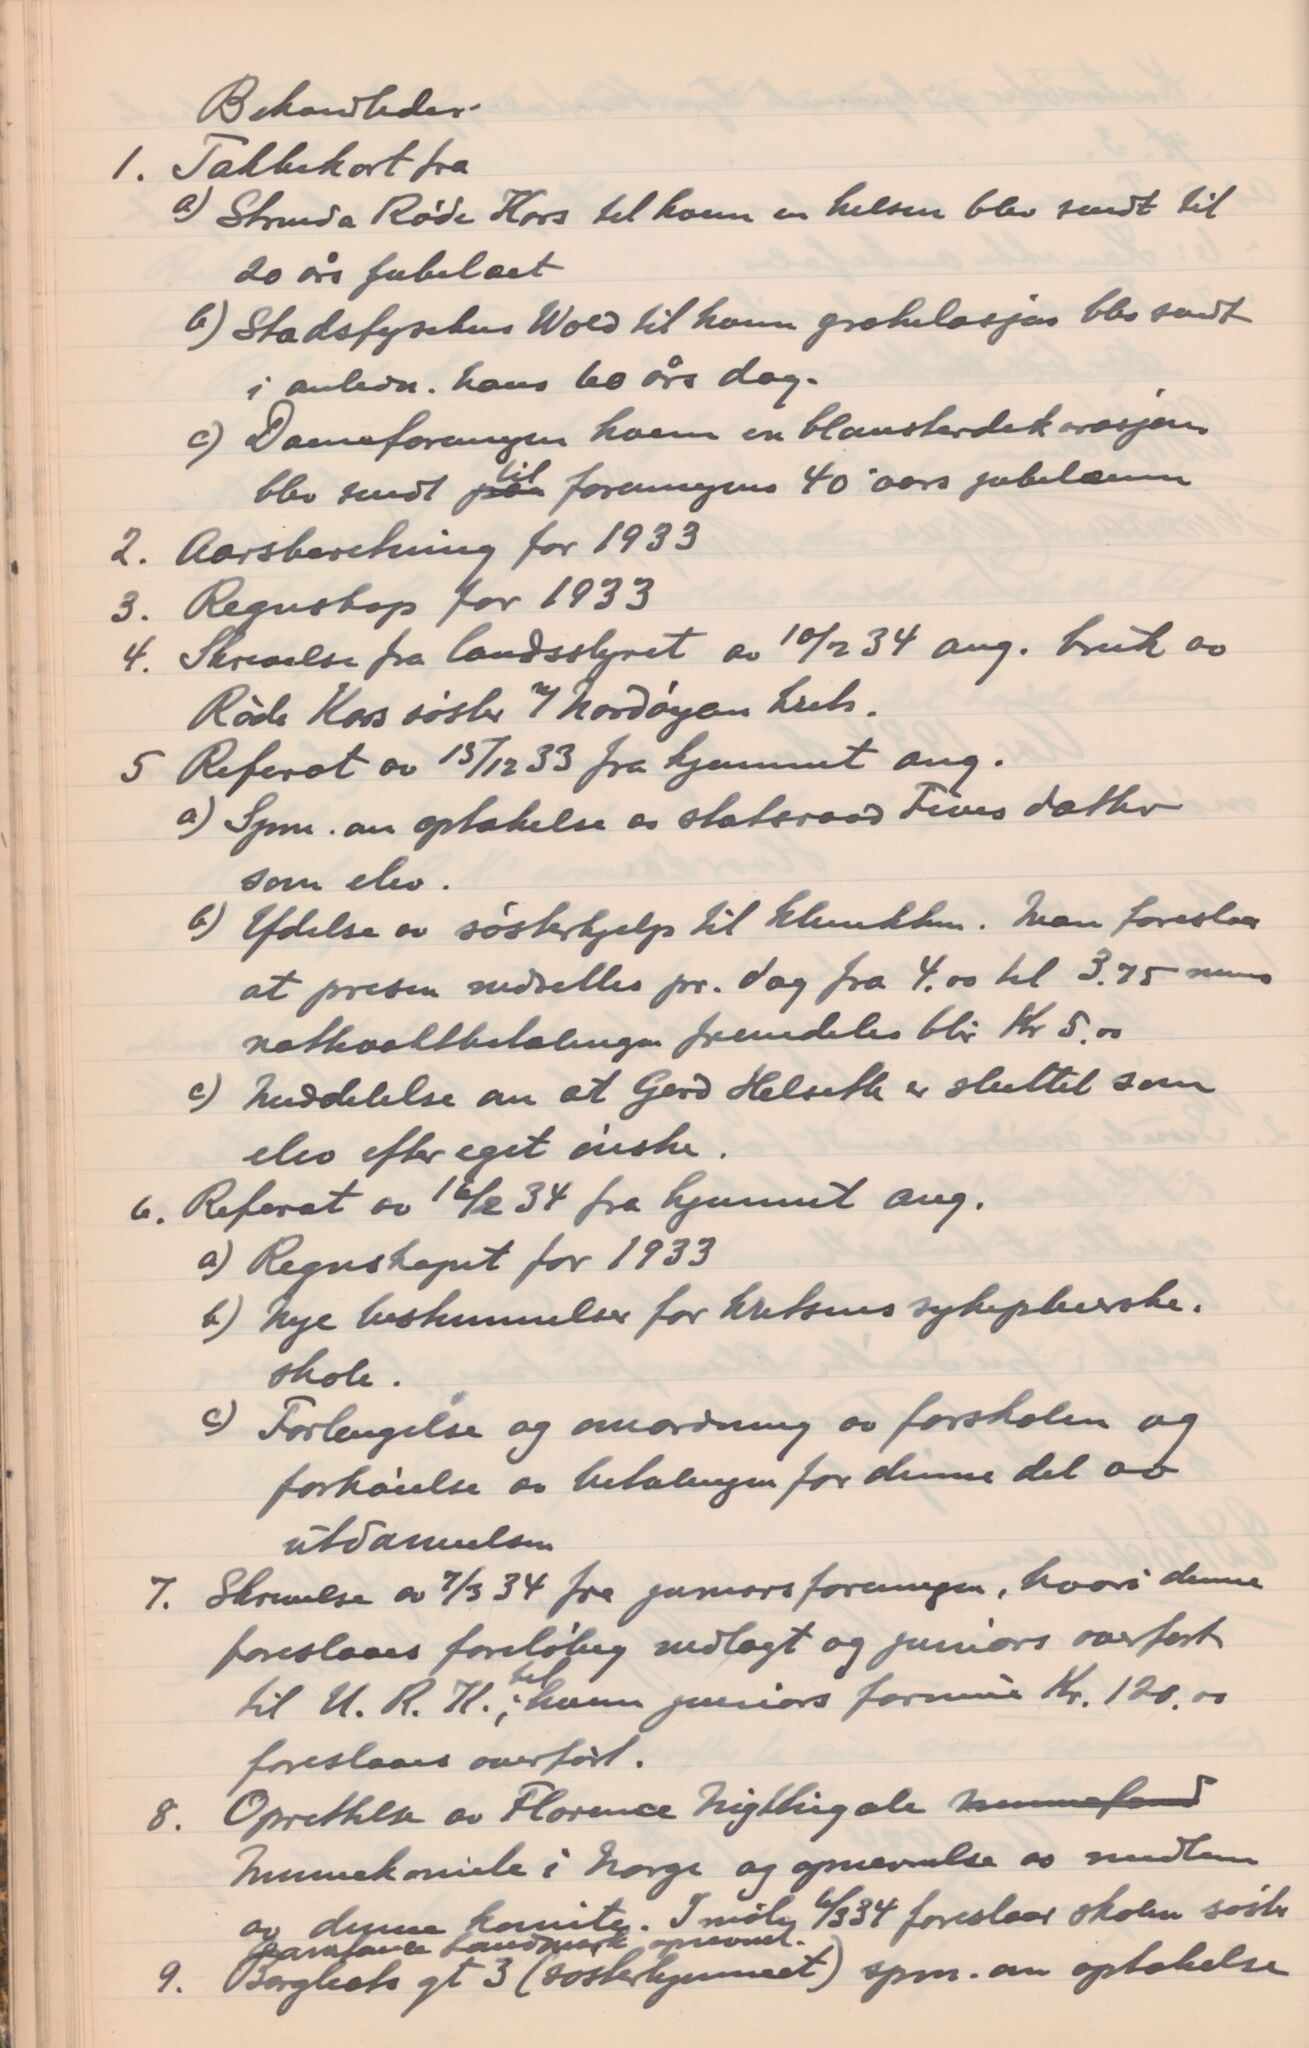 Behandledes.
1. Takkekort fra
a) Strinda Røde Kors til hvem en hilsen blev sendt til
20 års jubileet
b) Stadsfysikus Wold til hvem gratulasjon blev sendt
i anledn. hans 60 års dag.
c) Dameforeningen hvem en blomsterdekorasjon
blev sendt til foreningens 40 aars jubilæum
2. Aarsberetning for 1933
3. Regnskap for 1933
4. Skrivelse fra landsstyret av 10/2 34 ang. bruk av
Røde Kors søster i Nordøyan krets.
5 Referat av 15/12 33 fra hjemmet ang.
a) Spm. om optakelse av statsraad Five's datter
som elev.
b) Ydelse av søsterhjelp til klinikken. Man foreslaar
at prisen nedsettes pr. dag fra 4.00 til 3.75 mens
nattevaktbetalingen fremdeles blir Kr 5.00
c) Meddelelse om at Gerd Helseth er sluttet som
elev efter eget ønske.
6. Referat av 16/2 34 fra hjemmet ang.
a) Regnskapet for 1933
b) Nye bestemmelser for kretsens sykepleierske-
skole.
c) Forlengelse og omordning av forskolen og
forhøielse av betalingen for denne del av
utdannelsen
7. Skrivelse av 7/3 34 fra juniorsforeningen, hvori denne
foreslaaes foreløbig nedlagt og juniors overført
til U. R. K.; til hvem juniors formue Kr. 120.00
foreslaaes overført.
8. Oprettelse av Florence Nigthingale minnefond
Minnekomite i Norge og opnevnelse av medlem
av denne komite. I møte 6/3 34 foreslaar skolen søster
Landmark opnevnt.
9. Borgleats gt 3 (søsterhjemmet) spm. om optakelse